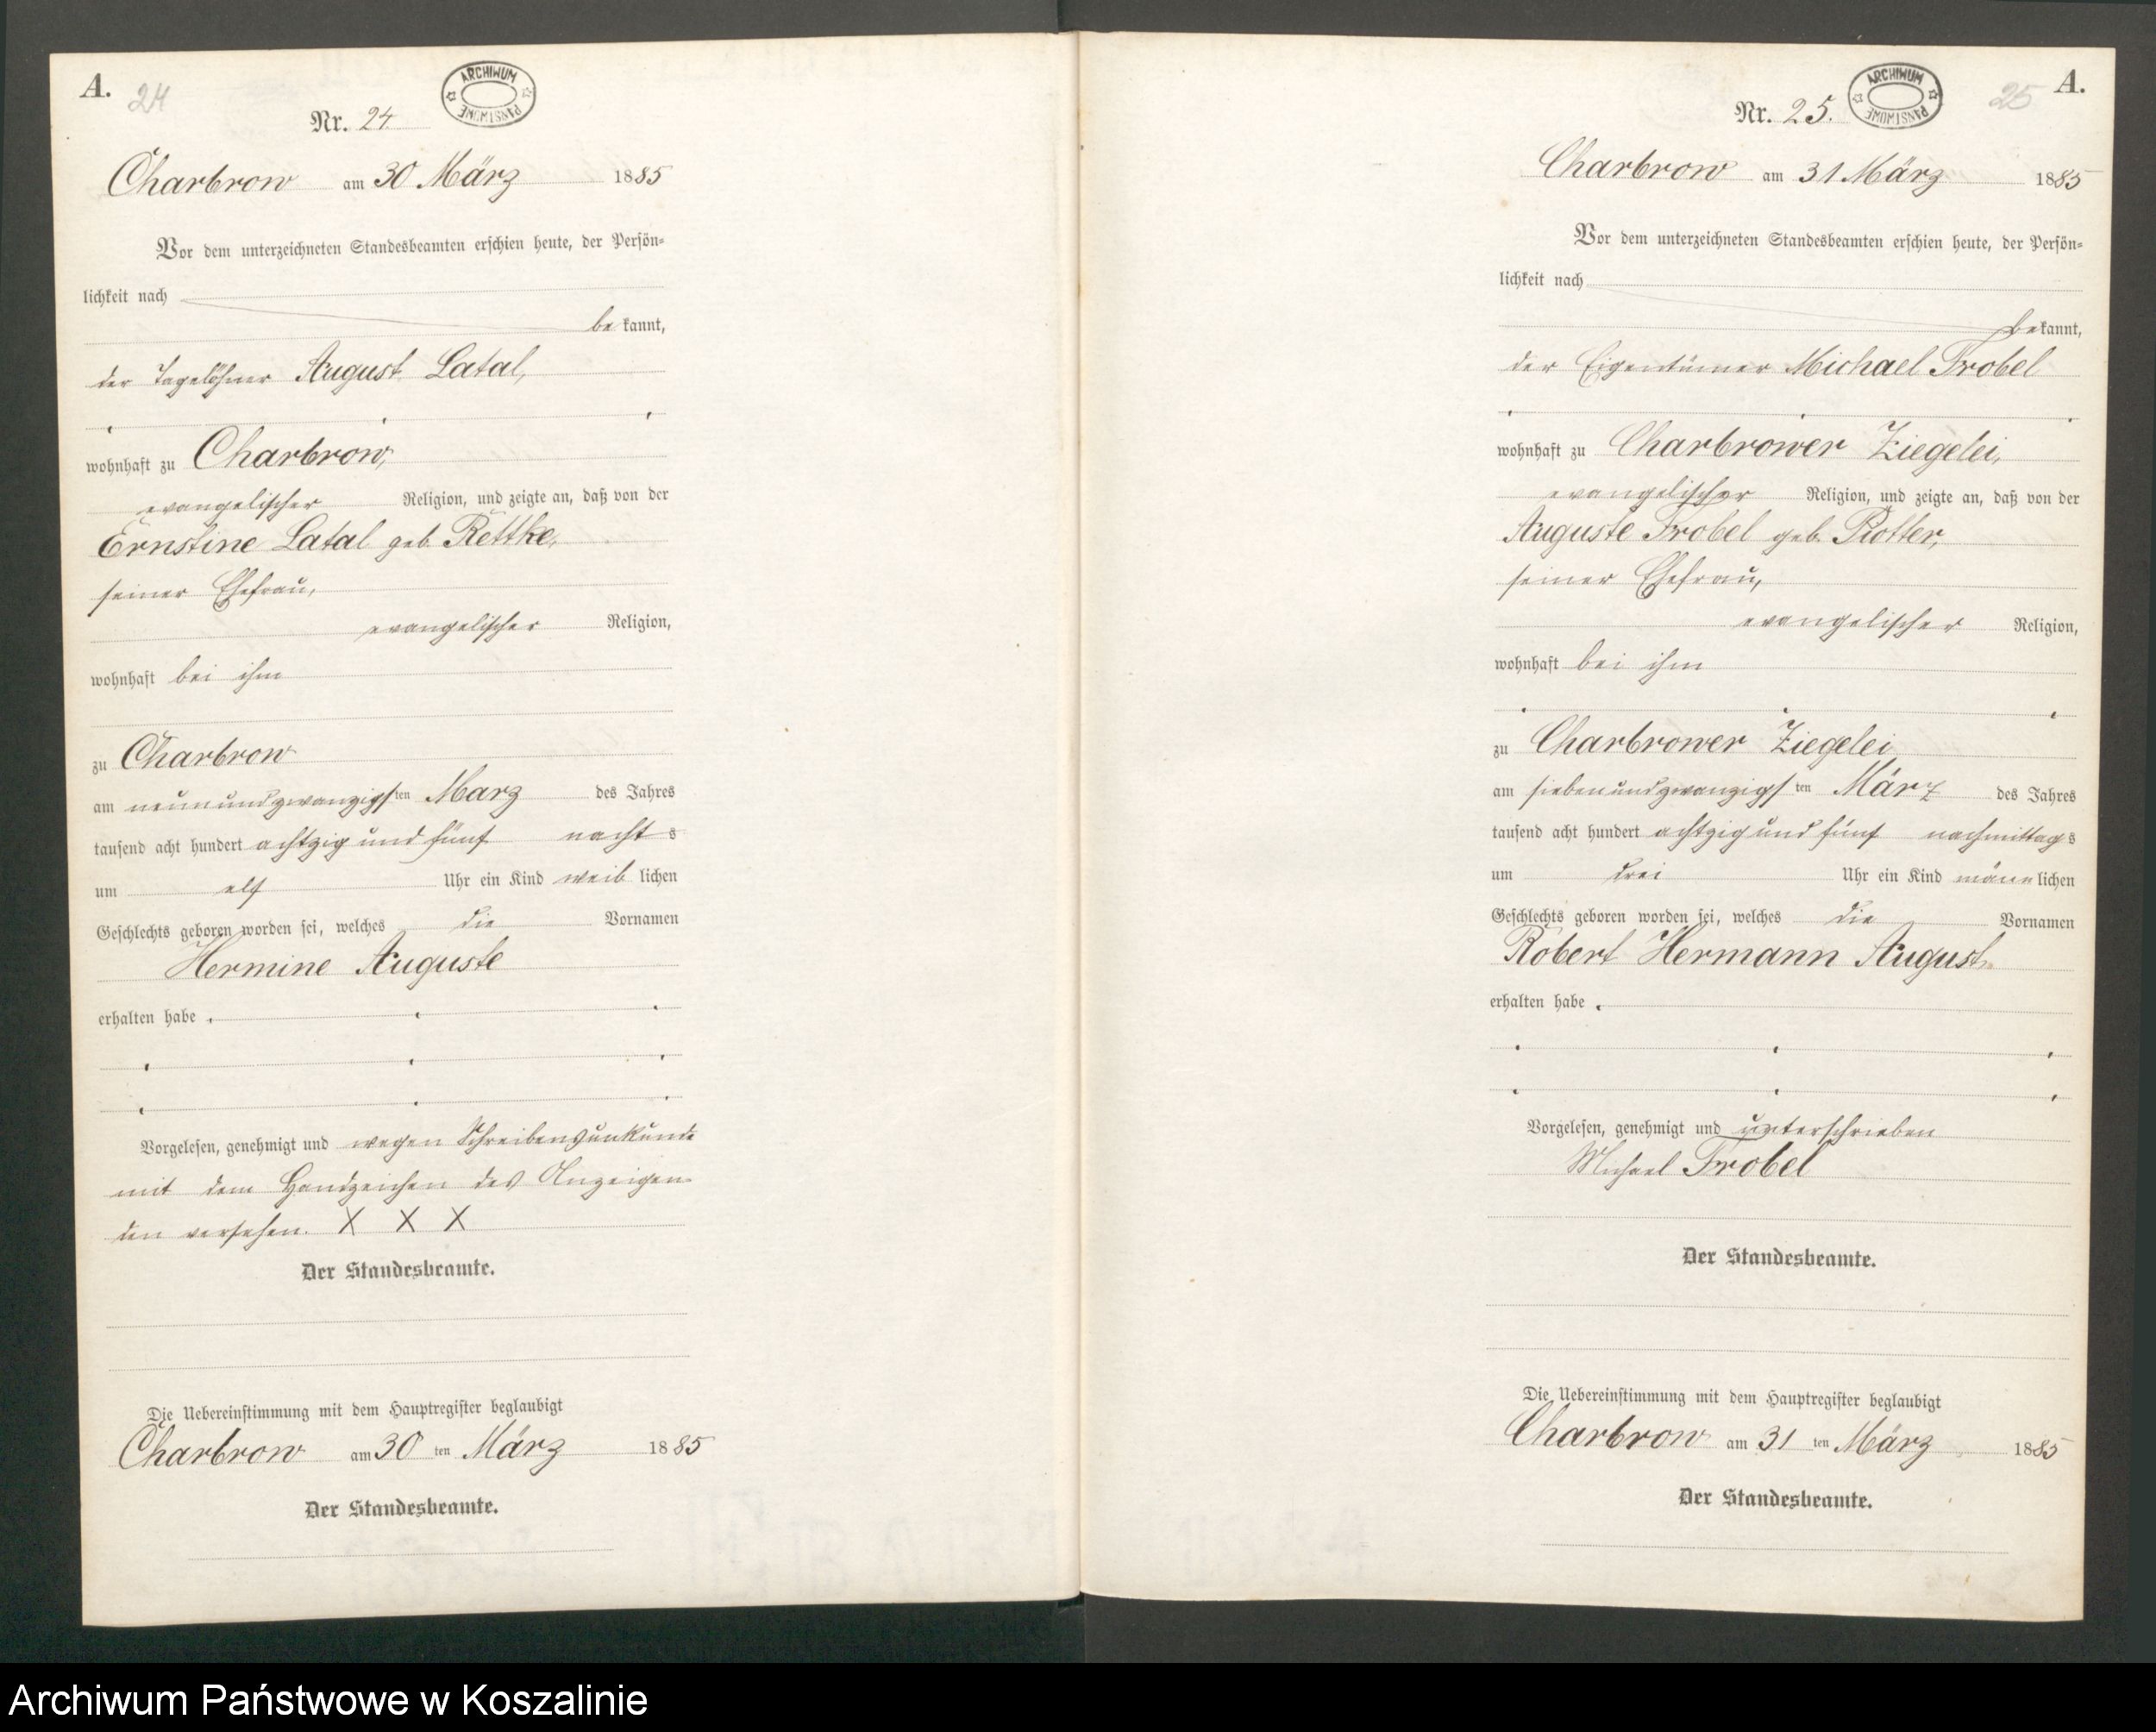 A.
24
ARCHIWUM PAŃSTWOWE
Nr. 24.
Charbrow am 30 März 1885
Vor dem unterzeichneten Standesbeamten erschien heute, der Persön-
lichkeit nach
be kannt,
der Tagelöhner August Latal,
wohnhaft zu Charbrow,
evangelischer Religion, und zeigte an, daß von der
Ernstine Latal geb. Rettke,
seiner Ehefrau,
evangelischer Religion,
wohnhaft bei ihm
zu Charbrow
am neunundzwanzigsten März des Jahres
tausend acht hundert achtzig und fünf nachts
um elf Uhr ein Kind weiblichen
Geschlechts geboren worden sei, welches die Vornamen
Hermine Auguste
erhalten habe .
Vorgelesen, genehmigt und wegen Schreibensunkunde
mit dem Handzeichen des Anzeigen-
den versehen. X X X
Der Standesbeamte.
Die Uebereinstimmung mit dem Hauptregister beglaubigt
Charbrow am 30 ten März 1885
Der Standesbeamte.
25
A.
ARCHIWUM PAŃSTWOWE
Nr. 25.
Charbrow am 31 März 1885
Vor dem unterzeichneten Standesbeamten erschien heute, der Persön-
lichkeit nach
bekannt,
der Eigentümer Michael Frobel
wohnhaft zu Charbrower Ziegelei,
evangelischer Religion, und zeigte an, daß von der
Auguste Frobel geb. Piotter,
seiner Ehefrau,
evangelischer Religion,
wohnhaft bei ihm
zu Charbrower Ziegelei
am siebenundzwanzigsten März des Jahres
tausend acht hundert achtzig und fünf nachmittags
um drei Uhr ein Kind männlichen
Geschlechts geboren worden sei, welches die Vornamen
Robert Hermann August
erhalten habe .
Vorgelesen, genehmigt und unterschrieben
Michael Frobel
Der Standesbeamte.
Die Uebereinstimmung mit dem Hauptregister beglaubigt
Charbrow am 31 ten März 1885
Der Standesbeamte.
Archiwum Państwowe w Koszalinie